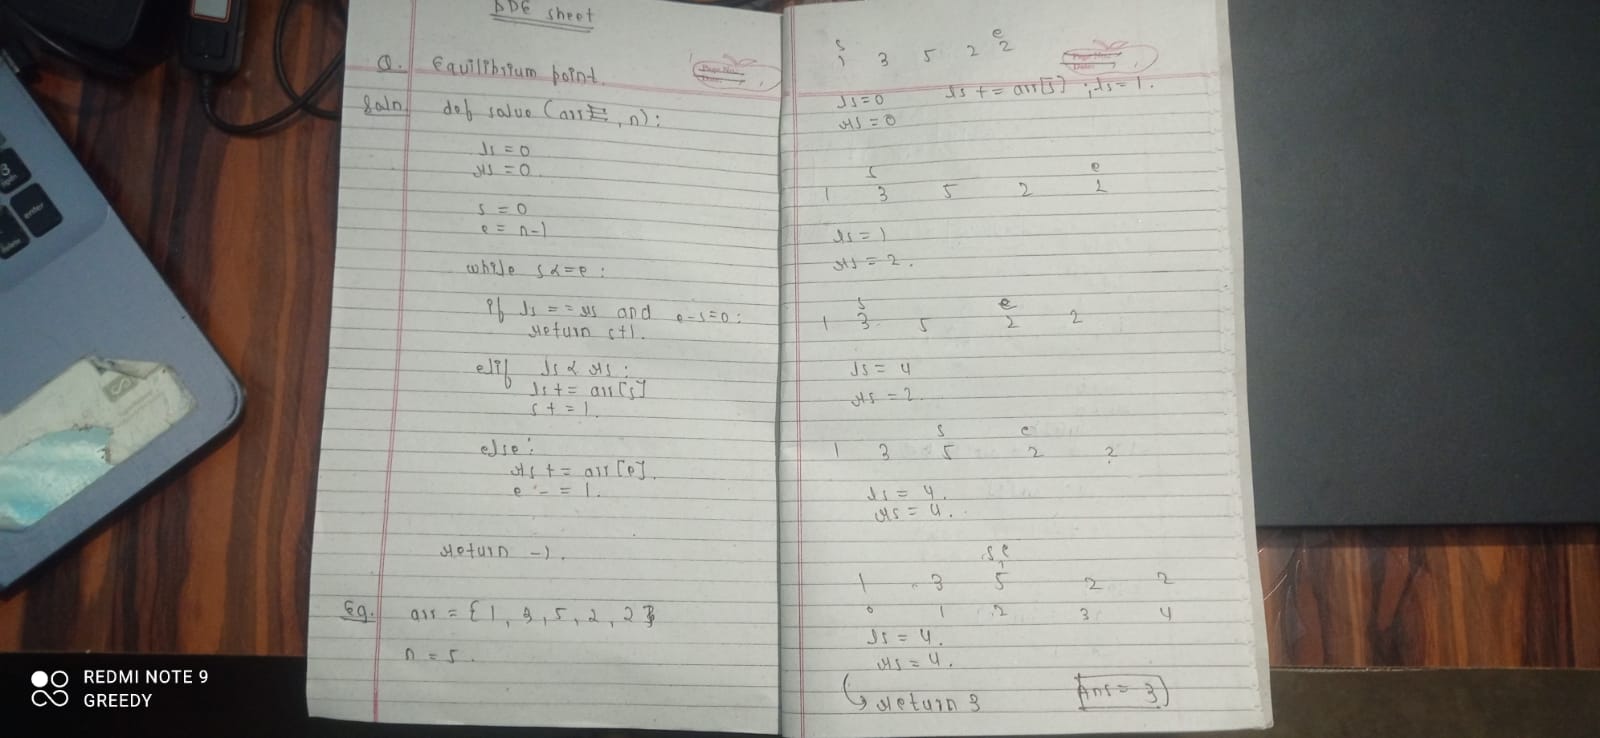 DDE sheet
Q. Equilibrium point.
Soln. def solve (arr, n):
ls = 0
rs = 0
s = 0
e = n-1
while s <= e :
if ls == rs and e-s=0:
return s+1.
elif ls < rs :
ls += arr[s]
s += 1.
else:
rs += arr[e].
e -= 1.
return -1.
Eg. arr = {1, 3, 5, 2, 2}
n = 5.
s e
1 3 5 2 2
ls=0 ls += arr[s] ; ls = 1.
rs = 0
s e
1 3 5 2 2
ls = 1
rs = 2.
s e
1 3 5 2 2
ls = 4
rs = 2.
s e
1 3 5 2 2
ls = 4.
rs = 4.
s e
1 3 5 2 2
0 1 2 3 4
ls = 4.
rs = 4.
return 3 Ans = 3
Page No.
Date:
Page No.
Date:
enter
3
REDMI NOTE 9
GREEDY